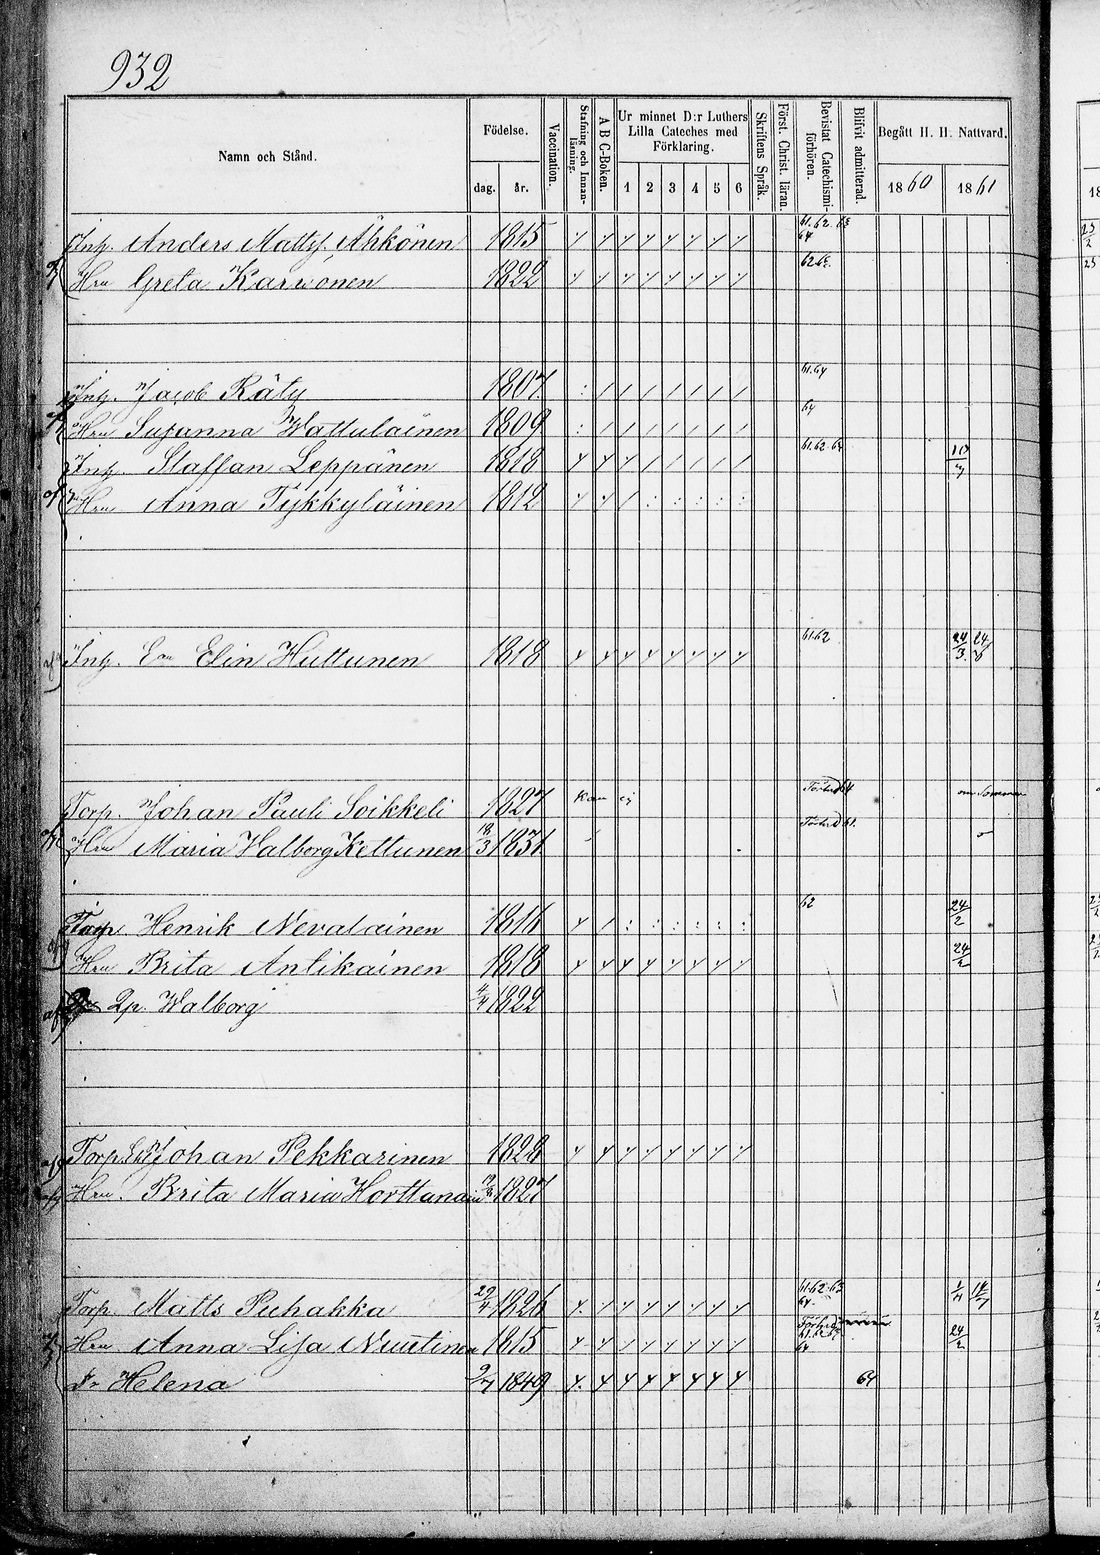 932
Namn och Stånd.
Födelse.
dag.
år.
Vaccination.
Stafning och Innanläsning.
A B C-Boken.
Ur minnet D:r Luthers Lilla Cateches med Förklaring.
1 2 3 4 5 6
Skriftens Språk.
Först. Christ. läran.
Bevistat Catechismiförhören.
Blifvit admitterad.
Begått H. H. Nattvard.
1860 1861
Inh. Anders Matts. Ähkönen 1815 61.62.63 64
Hru Greta Karvonen 1822
Inh. Jacob Räty 1807 61.64
Hru Susanna Wattulainen 1809 64
Inh. Staffan Leppänen 1818 61.62.64
Hru Anna Tykkyläinen 1812
Inh. Elin Huttunen 1818 61.62 24/3
Torp. Johan Pauli Soikkeli 1827 Kan ej
Hru Maria Walborg Kettunen 18/3 1831
Torp Henrik Nevalainen 1816 62 24/2
Hru Brita Antikainen 1818 24/2
Walborg 4/4 1822
Torp. Johan Pekkarinen 1828
Hru. Brita Maria Horttanain 1827
Torp. Matts Puhakka 29/4 1826 61.62.63 64
Hru Anna Lisa Nuutinen 1815 24/2
Helena 9/7 1849 64